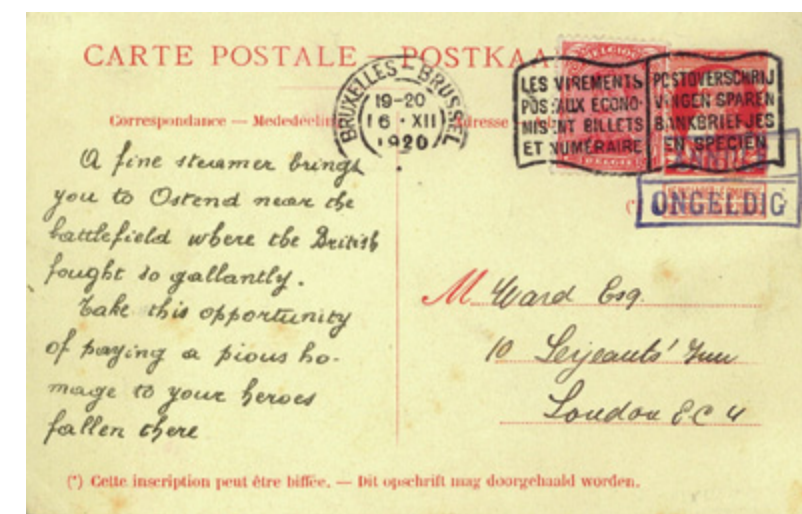 CARTE POSTALE — POSTKAA
BRUXELLES - BRUSSEL
19-20
16 · XII
1920
LES VIREMENTS
POSTAUX ECONO-
MISENT BILLETS
ET NUMÉRAIRE
POSTOVERSCHRIJ
VINGEN SPAREN
BANKBRIEFJES
EN SPECIEN
ONGELDIG
Correspondance — Mededeelin
Adresse
A fine steamer brings
you to Ostend near the
battlefield where the British
fought so gallantly.
Take this opportunity
of paying a pious ho-
mage to your heroes
fallen there
M Ward Esq.
10 Serjeants' Inn
London E C 4
(*) Cette inscription peut être biffée. — Dit opschrift mag doorgehaald worden.